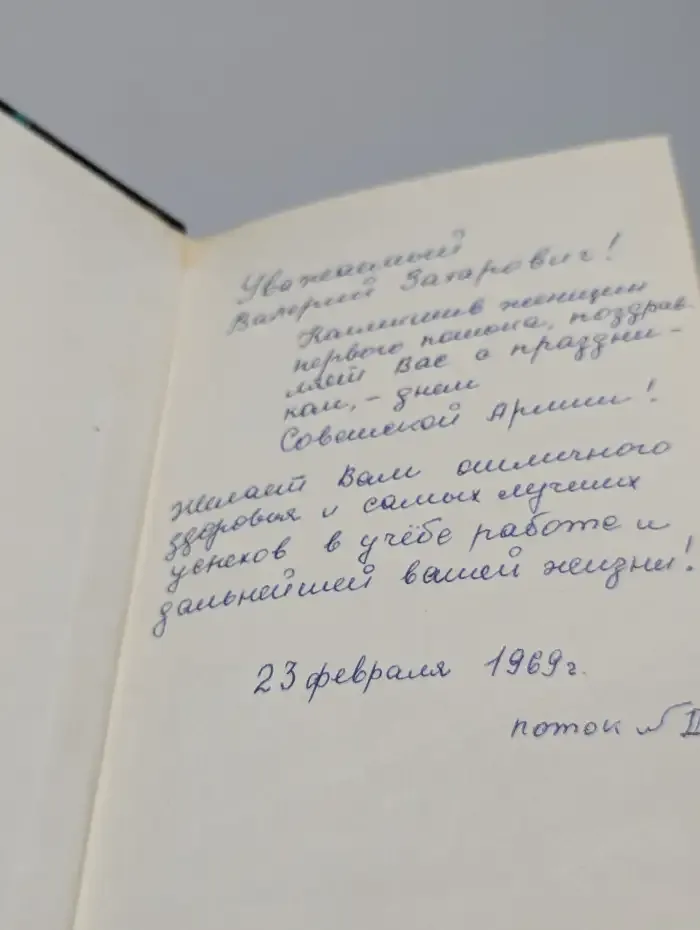 Уважаемый
Валерий Захарович!
Коллектив женщин
первого потока, поздрав-
ляет Вас с праздни-
ком, - днем
Советской Армии!
Желает Вам отличного
здоровья и самых лучших
успехов в учёбе работе и
дальнейшей вашей жизни!
23 февраля 1969г.
поток № II